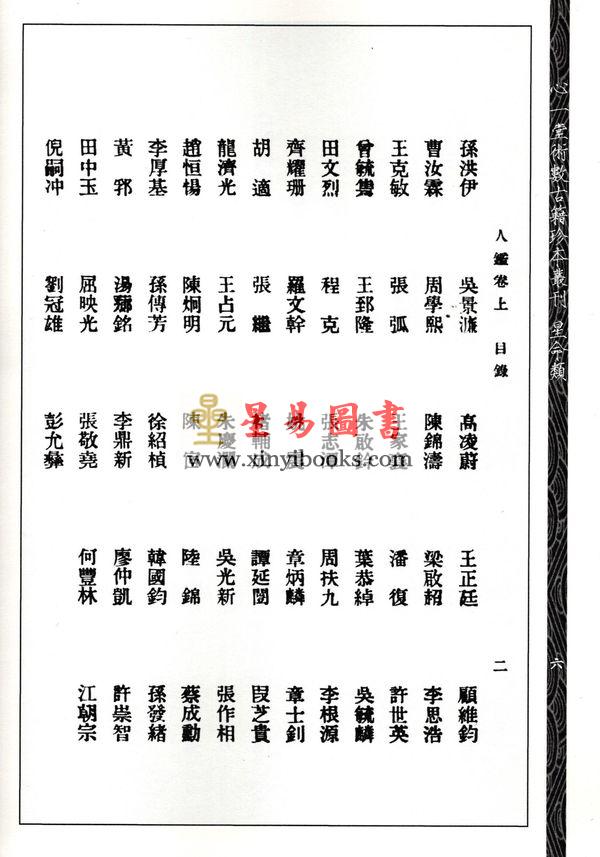 心一堂術數古籍珍本叢刊 星命類 六
人鑑卷上 目錄 二
孫洪伊 吳景濂 高凌蔚 王正廷 顧維鈞
曹汝霖 周學熙 陳錦濤 梁啟超 李思浩
王克敏 張弧 王家襄 潘復 許世英
曾毓雋 王郅隆 朱啟鈐 葉恭綽 吳毓麟
田文烈 程克 張志潭 周扶九 李根源
齊耀珊 羅文幹 章炳麟 章士釗
胡適 張繼 譚延闓 段芝貴
龍濟光 王占元 朱慶瀾 吳光新 張作相
趙恒惕 陳炯明 陳宧 陸錦 蔡成勳
李厚基 孫傳芳 徐紹楨 韓國鈞 孫發緒
黃郛 湯薌銘 李鼎新 廖仲凱 許崇智
田中玉 屈映光 張敬堯 何豐林 江朝宗
倪嗣冲 劉冠雄 彭允彝
星易圖書
www.xinyibooks.com